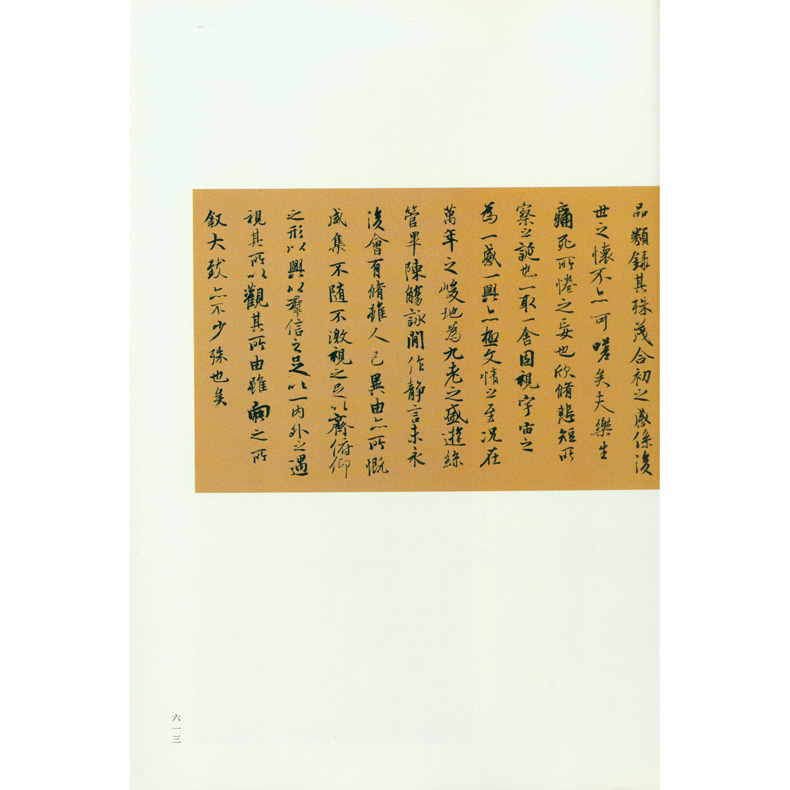 品類錄其殊茂合初之感係後
世之懷不亦可嗟矣夫樂生
痛死所惓之妄也欣脩悲短所
察之誕也一取一舍固視宇宙之
為一感一興亦極文情之至況在
萬年之峻地為九老之盛遊絲
管畢陳觴詠閒作靜言未永
後會有脩雖人已異由亦所慨
咸集不隨不激視之足以齊俯仰
之形以興以羣信之足以一內外之遇
視其所以觀其所由雖 之所
敘大致亦不少殊也矣
六一三